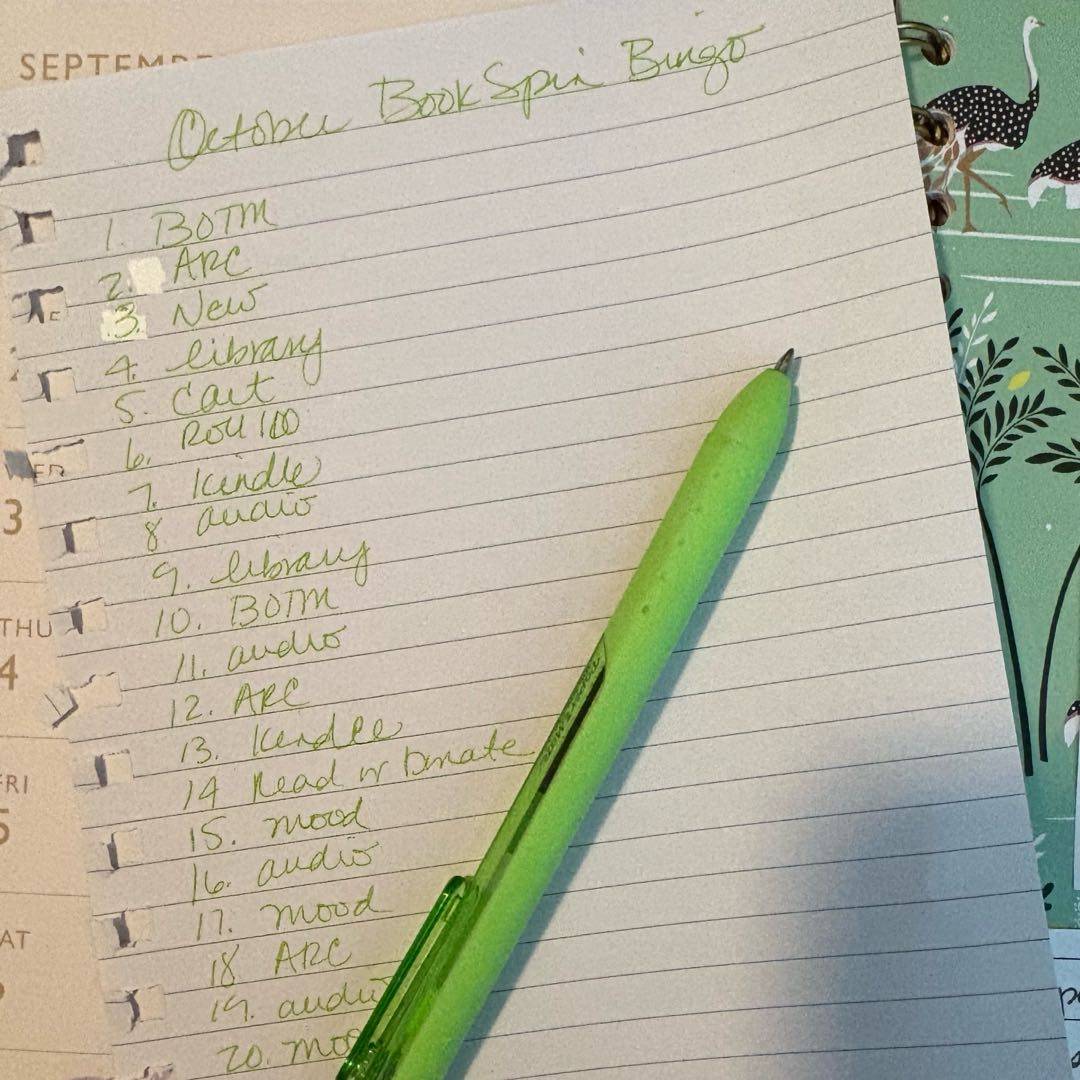 SEPTEMBE
October BookSpin Bingo
1. BOTM
2 ARC
3. New
4. library
5. Cart
6. Roll 100
7. Kindle
8 audio
9. library
10. BOTM
11. audio
12. ARC
13. Kindle
14 Read or Donate
15. mood
16. audio
17. mood
18 ARC
19. audio
20. moo
WED
3
THU
4
FRI
5
SAT